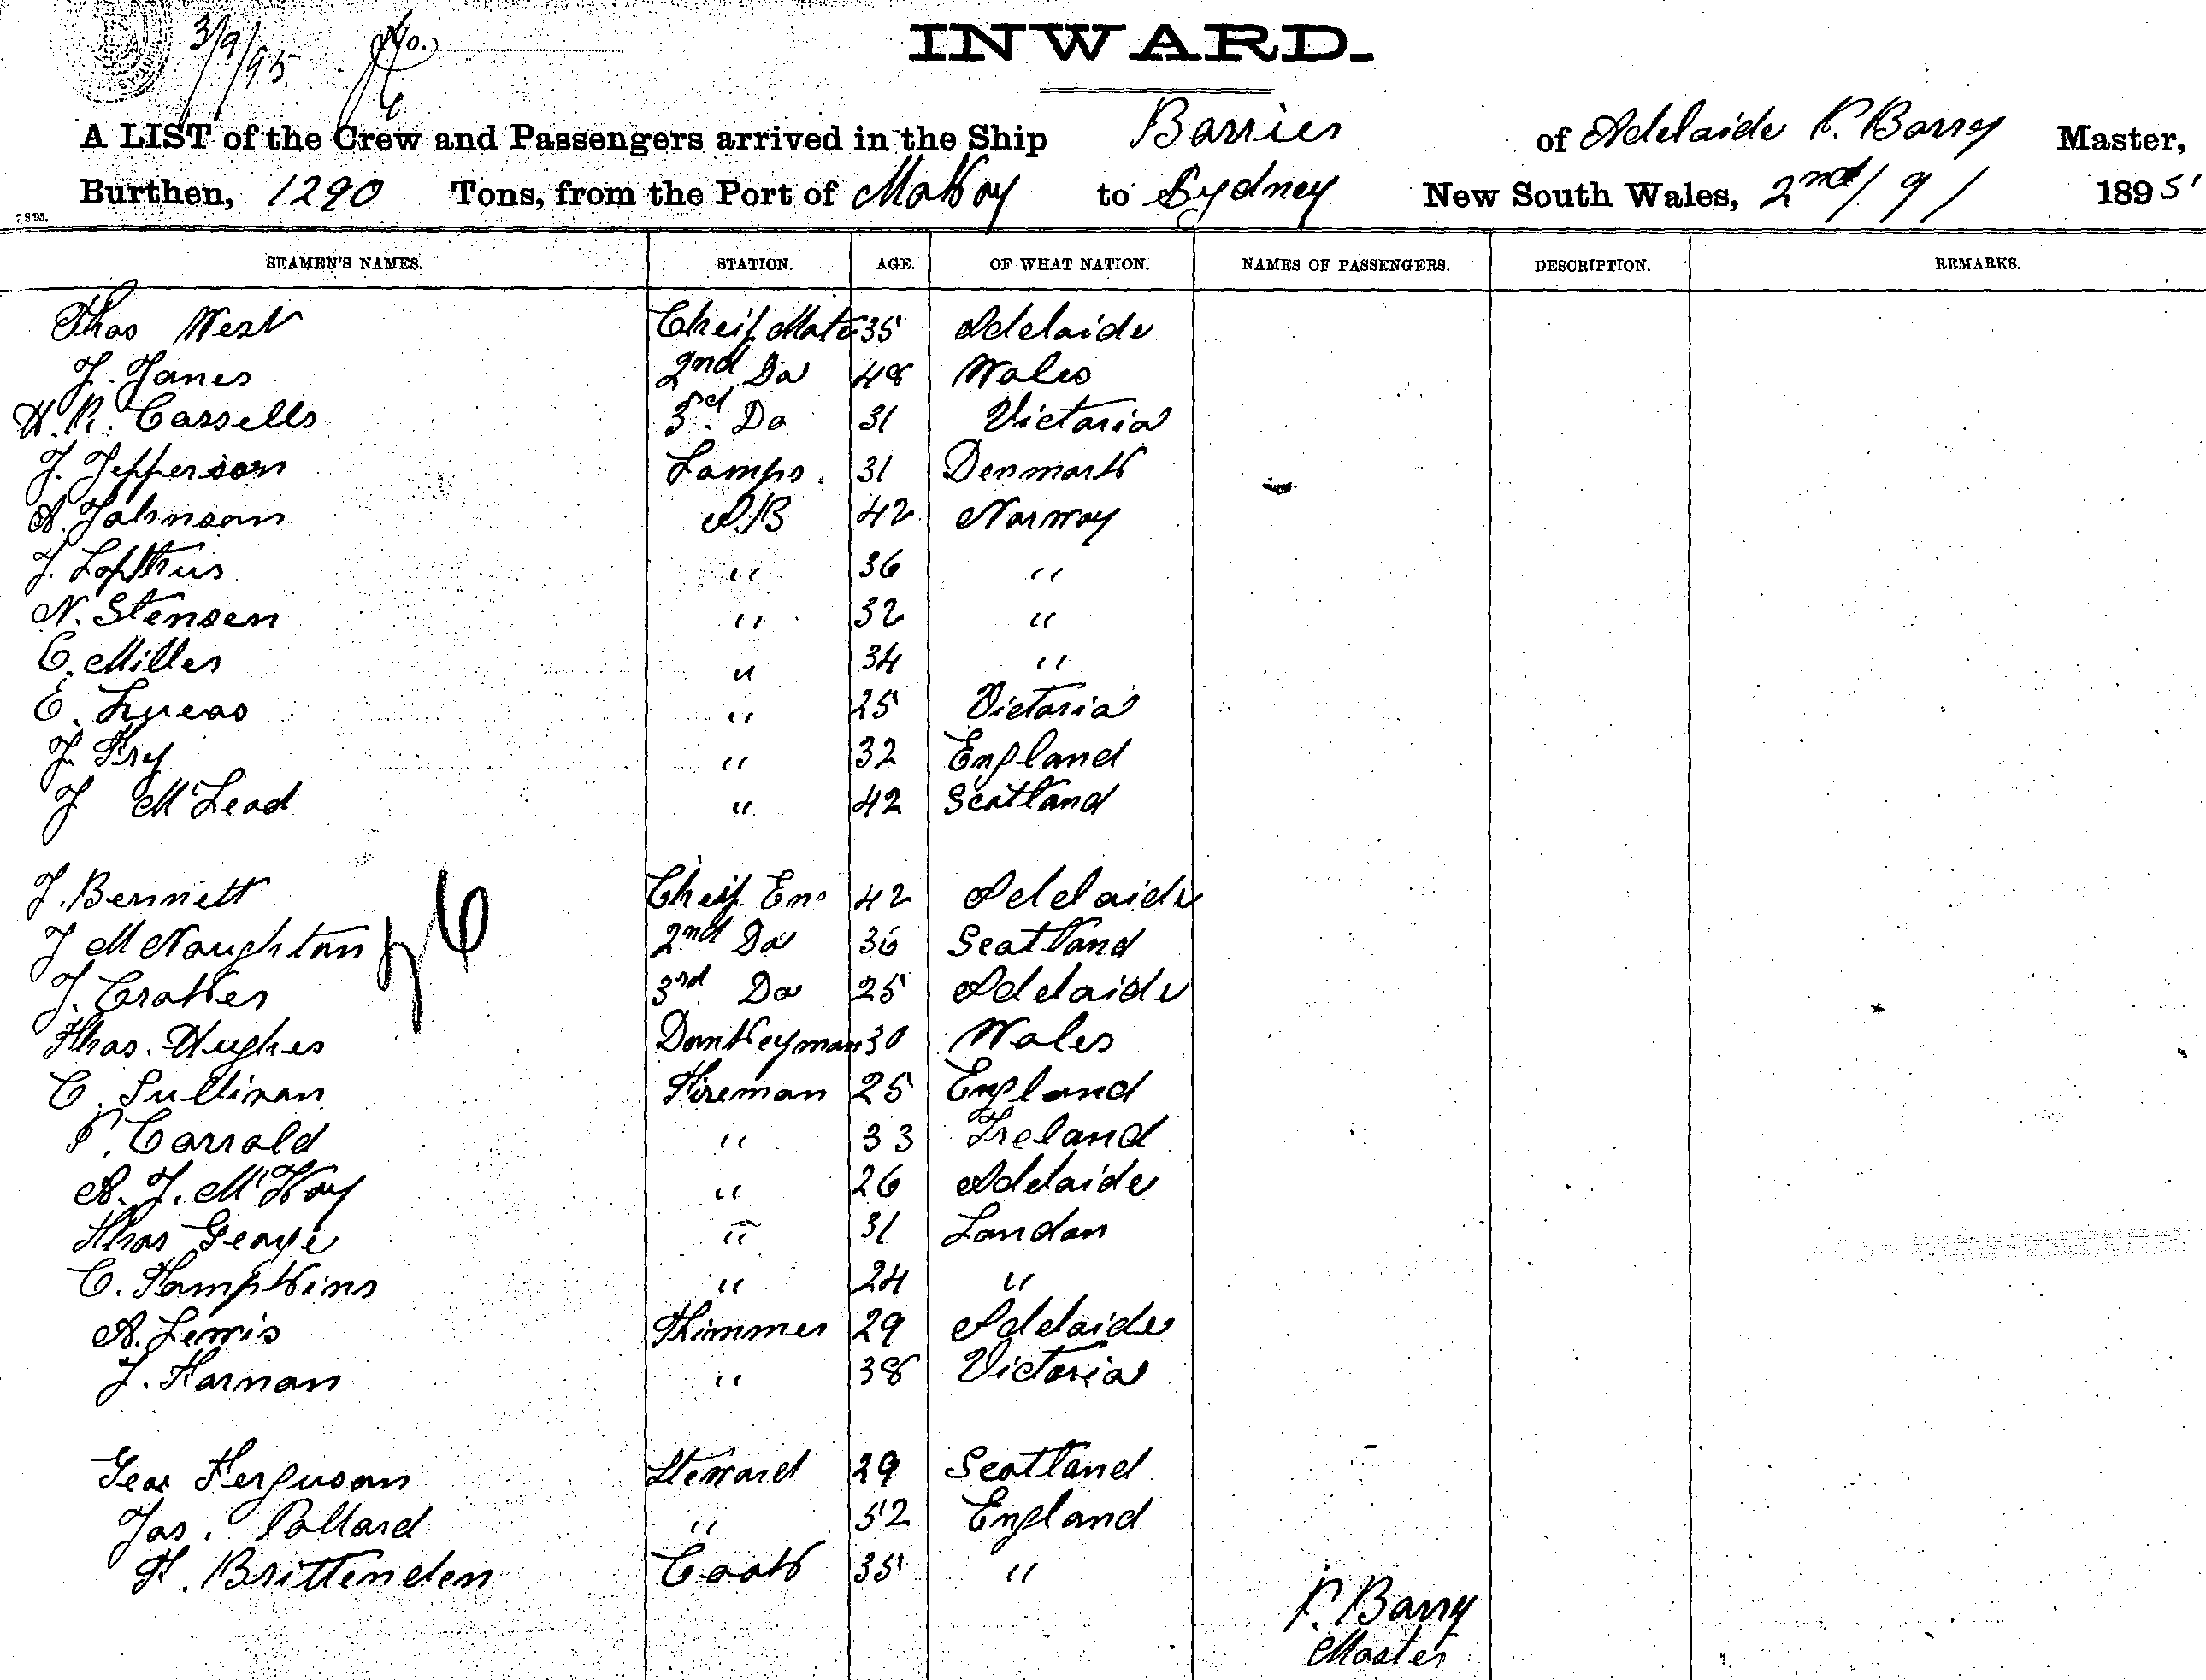 3/9/95 No.
INWARD.
A LIST of the Crew and Passengers arrived in the Ship Barrier of Adelaide P. Barry Master,
Burthen, 1290 Tons, from the Port of Makay to Sydney New South Wales, 2nd/ 9 / 1895
SEAMEN'S NAMES. STATION. AGE. OF WHAT NATION. NAMES OF PASSENGERS. DESCRIPTION. REMARKS.
Thos West Cheif Mate 35 Adelaide
J. Jones 2nd Do 48 Wales
H. R. Cassells 3rd Do 31 Victoria
J. Jefferson Lamps. 31 Denmark
A. Johnson A.B 42 Norway
J. Lofthus " 36 "
N. Stensen " 32 "
C. Miller " 34 "
E. Lucas " 25 Victoria
J. Fry " 32 England
J McLeod " 42 Scotland
J. Bennett Cheif En. 42 Adelaide
J McNaughton 2nd Do 36 Scotland
J. Croker 3rd Do 25 Adelaide
Thos. Hughes Donkeyman 30 Wales
C. Sullivan Fireman 25 England
P. Carrold " 33 Ireland
A. J. McKay " 26 Adelaide
Thos George " 31 London
C. Tompkins " 24 "
A. Lewis Trimmer 29 Adelaide
J. Harnan " 38 Victoria
Geo Ferguson Steward 29 Scotland
Jas. Pollard " 52 England
F. Brittenden Cook 35 "
P. Barry
Master